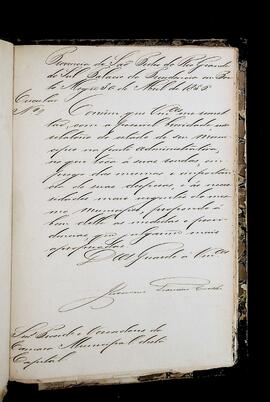 Provincia de São Pedro do Rio Grande
do Sul Palacio da Presidencia em Por
to Alegre 30 de Abril de 1855
Circular
Nº
Convém que V.ᵃˢ me remet
tão, com a possivel brevidade um
relatorio do estado de seu Muni
cipio na parte administrativa,
no que toca á suas rendas, em
prego das mesmas e importan
cia de suas despesas, e ás neces
sidades mais urgentes do mes
mo municipio, propondo a
bem dellas as medidas e provi
dencias que julgarem mais
apropriadas.
Deos Guarde á V.ᵃˢ
Snr.ᵉˢ Presid.ᵉ e Vereadores da
Camara Municipal desta
Capital